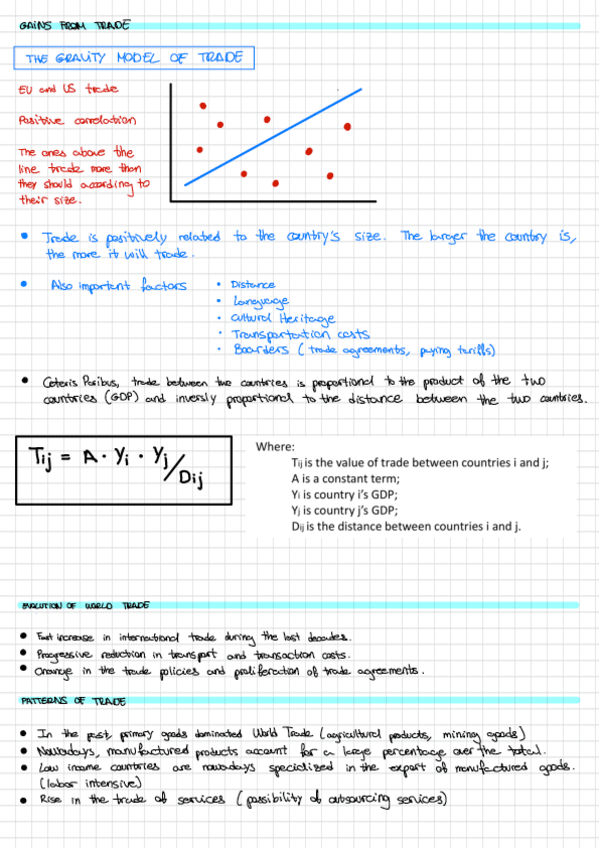 GAINS FROM TRADE
THE GRAVITY MODEL OF TRADE
EU and US trade
Positive correlation
The ones above the
line trade more than
they should according to
their size.
• Trade is positively related to the country's size. The larger the country is,
the more it will trade.
• Also important factors
• Distance
• Language
• Cultural Heritage
• Transportation costs
• Boarders (trade agreements, paying tariffs)
• Ceteris Paribus, trade between two countries is proportional to the product of the two
countries (GDP) and inversly proportional to the distance between the two countries.
Tij = A · Yi · Yj / Dij
Where:
Tij is the value of trade between countries i and j;
A is a constant term;
Yi is country i's GDP;
Yj is country j's GDP;
Dij is the distance between countries i and j.
EVOLUTION OF WORLD TRADE
• Fast increase in international trade during the last decades.
• Progressive reduction in transport and transaction costs.
• Change in the trade policies and proliferation of trade agreements.
PATTERNS OF TRADE
• In the past, primary goods dominated World Trade (agricultural products, mining goods)
• Nowadays, manufactured products account for a large percentage over the total.
• Low income countries are nowadays specialized in the export of manufactured goods.
(labor intensive)
• Rise in the trade of services (possibility of outsourcing services)